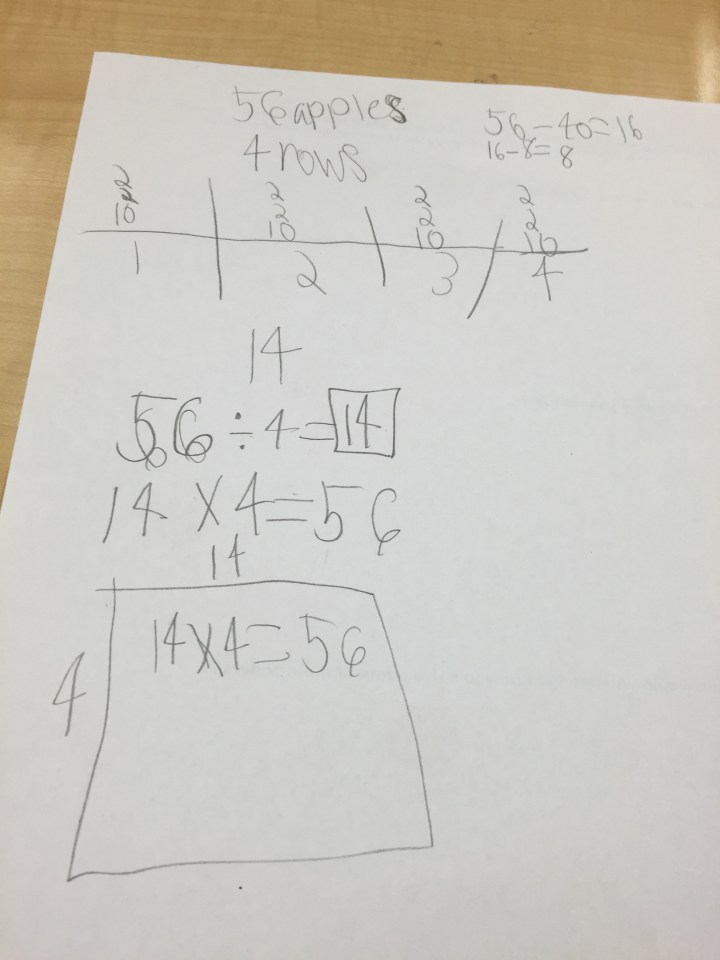 56 apples
4 rows
56-40=16
16-8=8
10 2 2
10 2 2
10 2 2
10 2 2
1 2 3 4
14
56÷4=14
14 X4=56
14
4
14X4=56